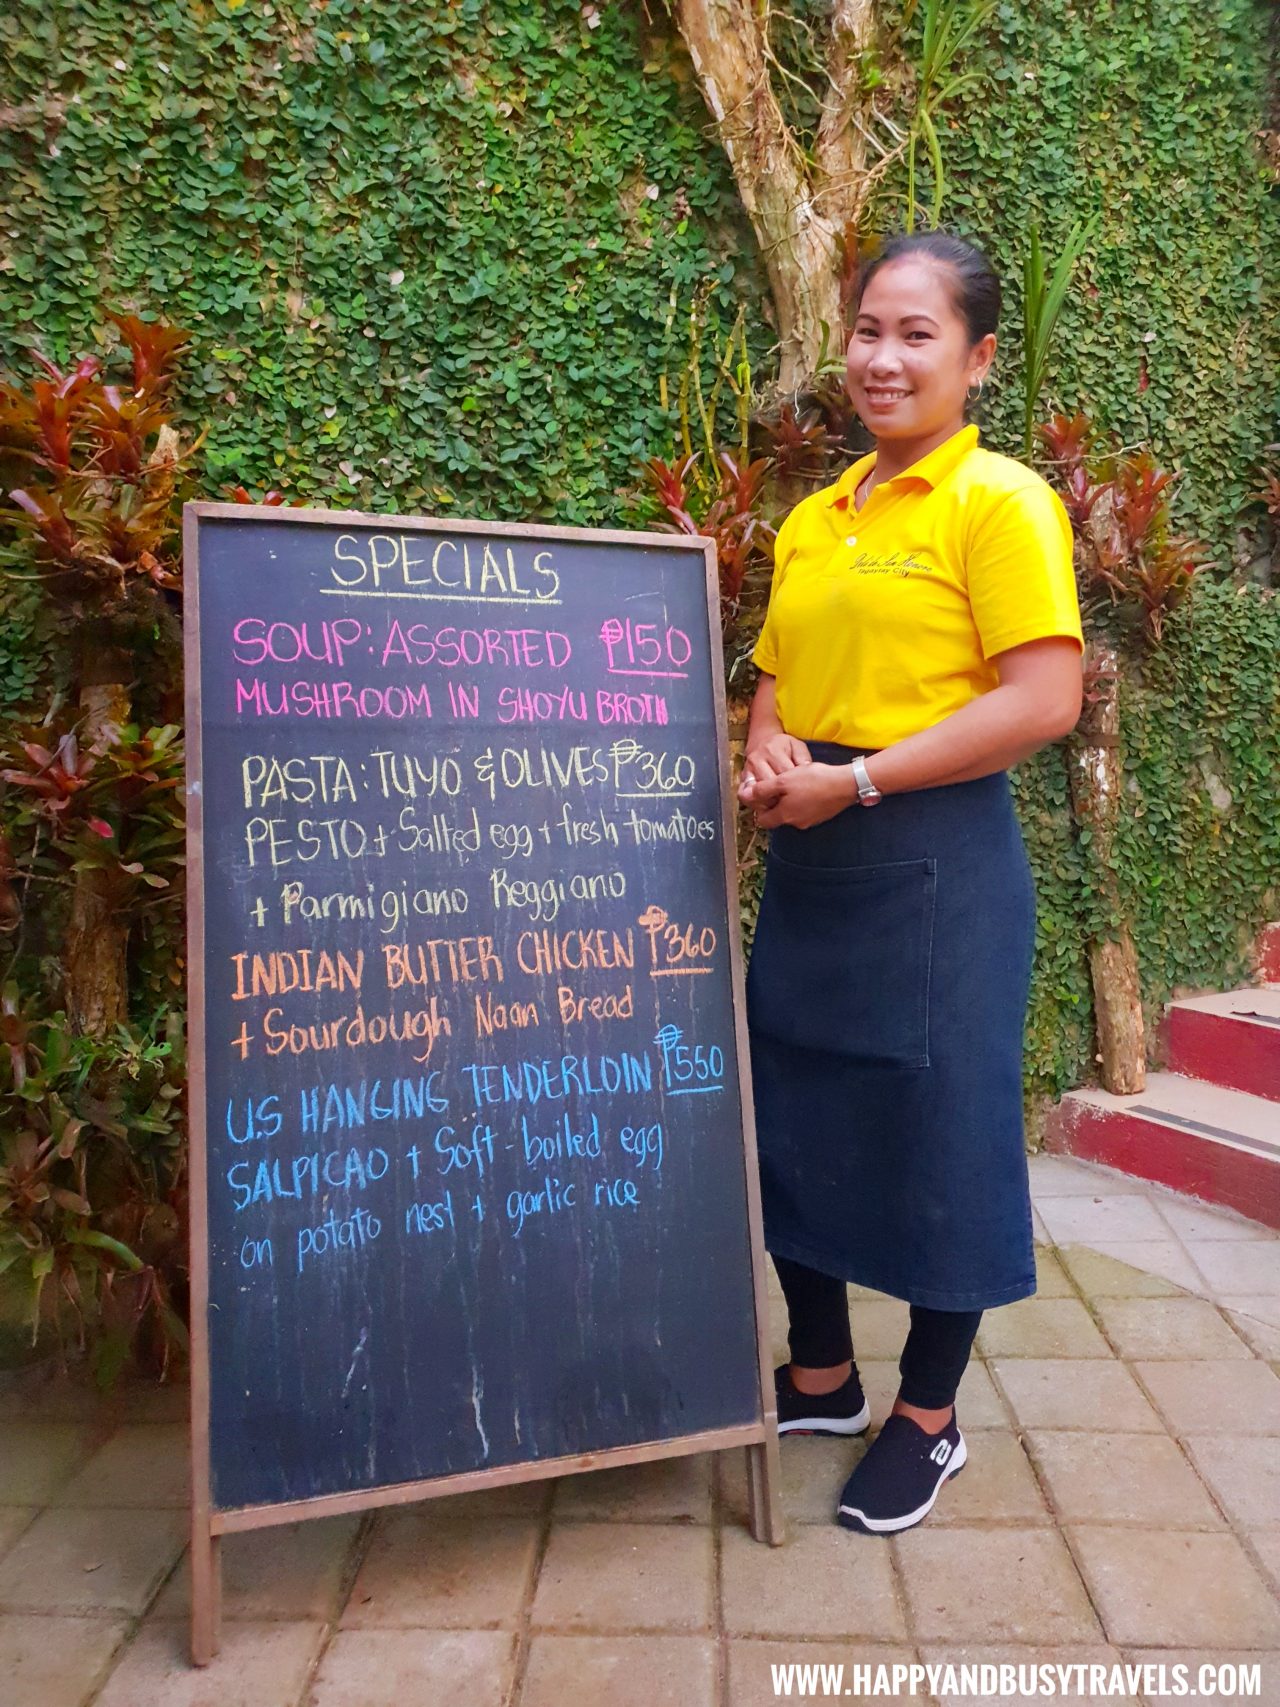 SPECIALS
SOUP: ASSORTED ₱150
MUSHROOM IN SHOYU BROTH
PASTA: TUYO & OLIVES ₱360
PESTO + Salted egg + fresh tomatoes
+ Parmigiano Reggiano
INDIAN BUTTER CHICKEN ₱360
+ Sourdough Naan Bread
U.S HANGING TENDERLOIN ₱550
SALPICAO + Soft-boiled egg
on potato nest + garlic rice
Tagaytay City
WWW.HAPPYANDBUSYTRAVELS.COM